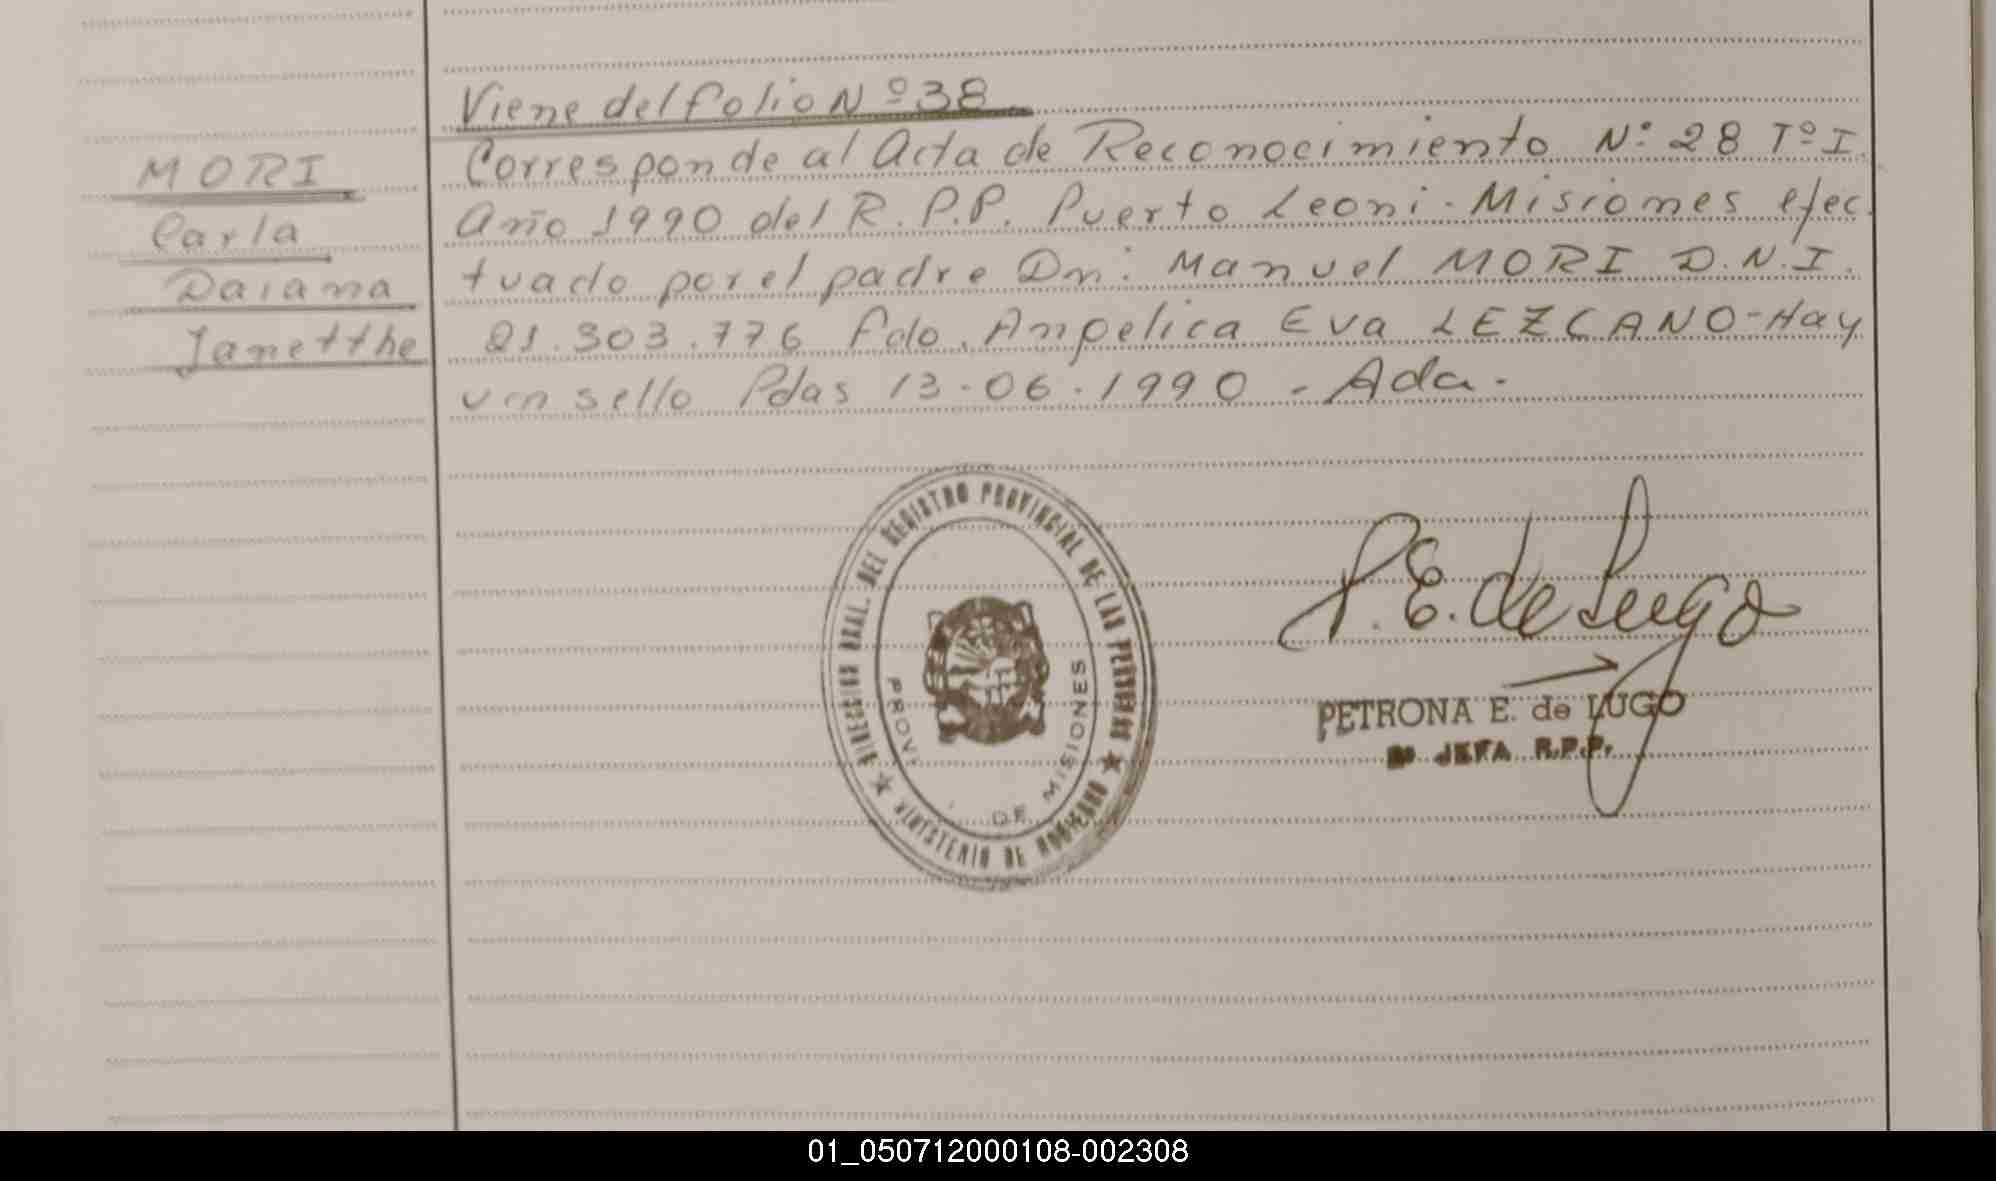 Viene del folio Nº 38
MORI
Carla
Daiana
Janetthe
Corresponde al Acta de Reconocimiento Nº 28 Tº I.
Año 1990 del R.P.P. Puerto Leoni - Misiones efec
tuado por el padre Dn: Manuel MORI D.N.I.
21.303.776 Fdo. Angelica Eva LEZCANO - Hay
un sello Pdas 13-06-1990 - Ada.
DIRECCION GRAL. DEL REGISTRO PROVINCIAL DE LAS PERSONAS
MINISTERIO DE GOBIERNO
PROV. DE MISIONES
P.E. de Lugo
PETRONA E. de LUGO
JEFA R.P.P.
01_050712000108-002308